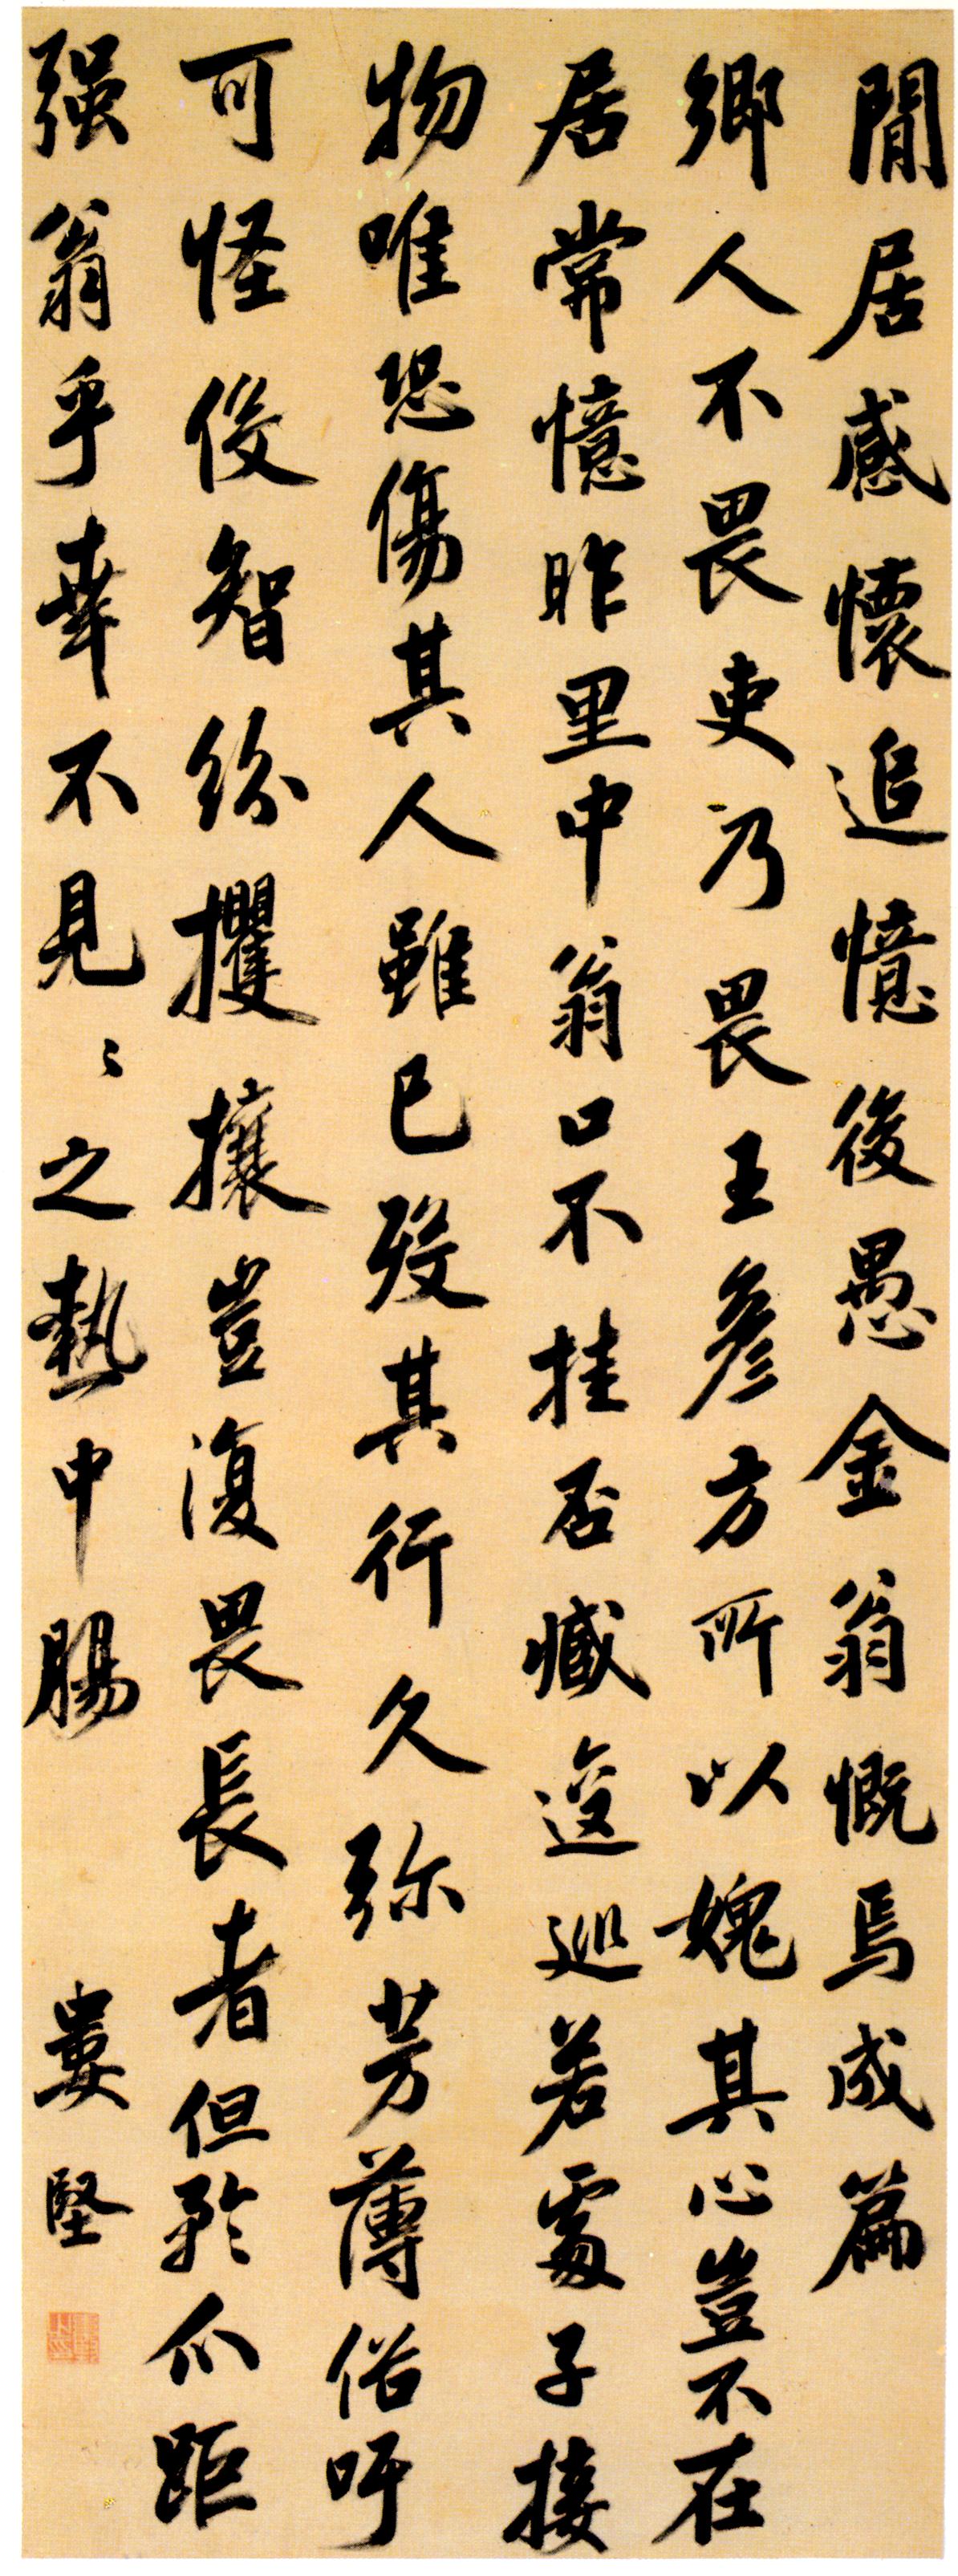 閒居感懷追憶後愚金翁慨焉成篇
鄉人不畏吏乃畏王彥方所以媿其心豈不在
居常憶昨里中翁口不挂否臧逡巡若處子接
物唯恐傷其人雖已歿其行久弥芳薄俗吁
可怪侵智紛攫攘豈復畏長者但矜爪距
强翁乎幸不見〻之熱中腸
婁堅